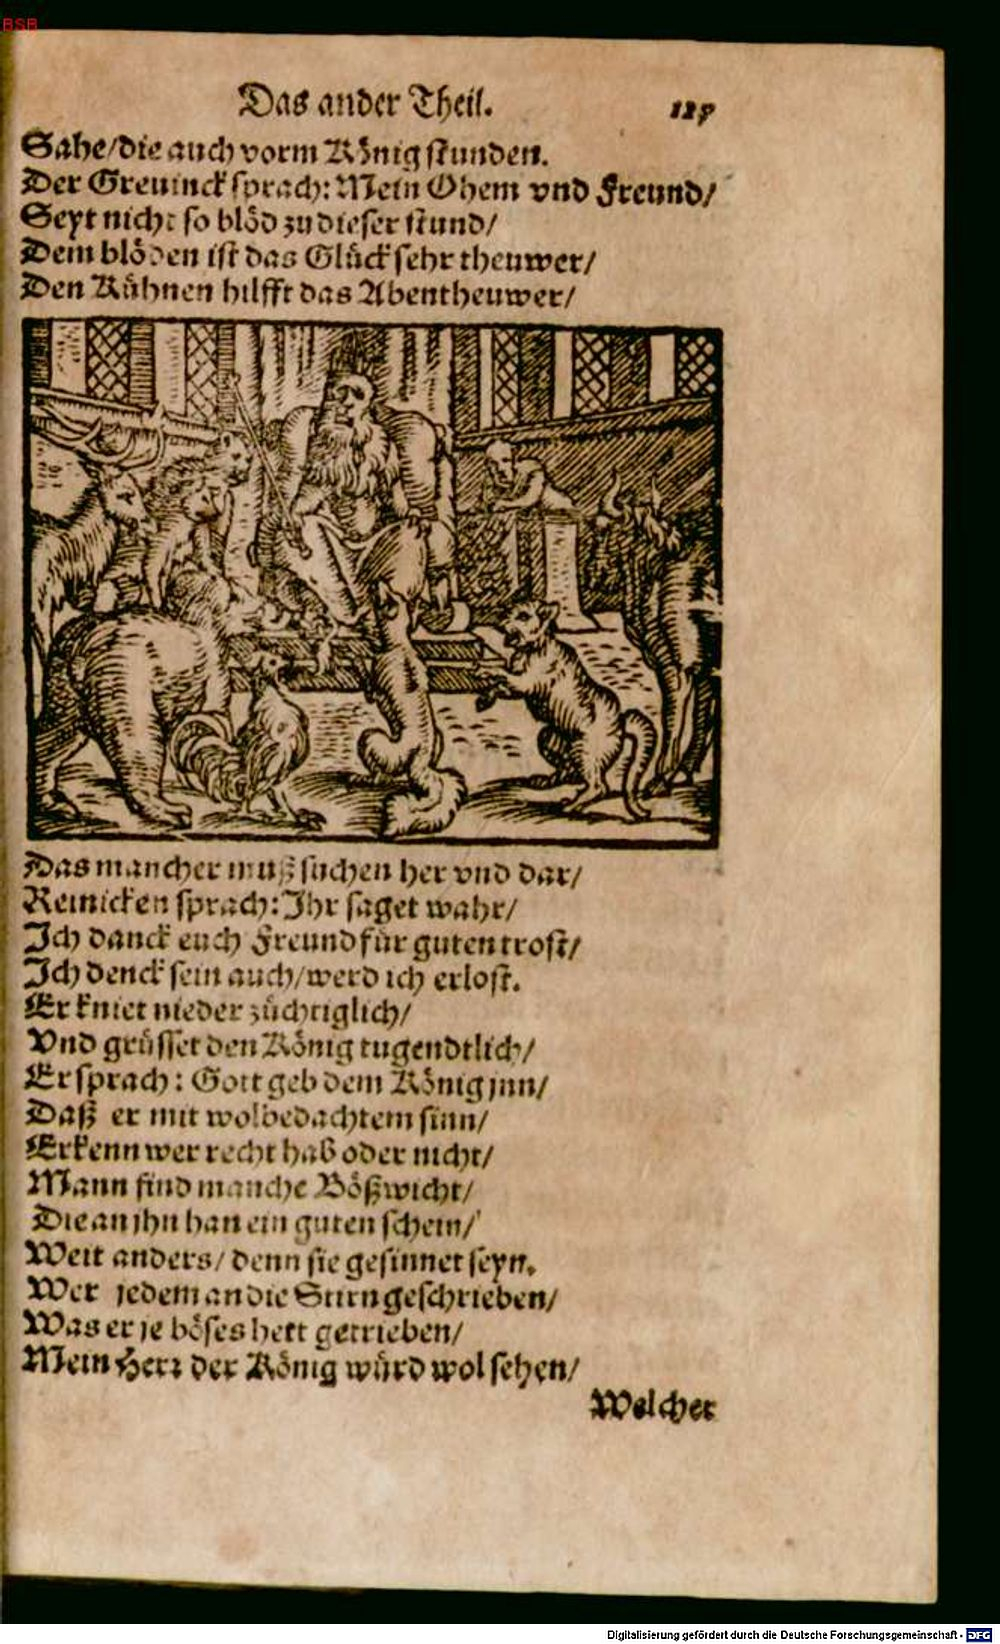 BSB
Das ander Theil.
Sahe/die auch vorm König stunden.
Der Greuinck sprach: Mein Ohem vnd Freund/
Seyt nicht so blöd zu dieser stund/
Dem blöden ist das Glück sehr theuwer/
Den Kühnen hilfft das Abentheuwer/
Das mancher muß suchen her vnd dar/
Reinicken sprach: Ihr saget wahr/
Ich danck euch Freund für guten trost/
Ich denck sein auch/werd ich erlost.
Er kniet nieder züchtiglich/
Vnd grüsset den König tugendtlich/
Er sprach: Gott geb dem König jnn/
Daß er mit wolbedachtem sinn/
Erkenn wer recht hab oder nicht/
Mann find manche Bößwicht/
Die an jhn han ein guten schein/
Weit anders/ denn sie gesinnet seyn.
Wer jedem an die Stirn geschrieben/
Was er je böses hett getrieben/
Mein Herr der König würd wol sehen/
Welcher
Digitalisierung gefördert durch die Deutsche Forschungsgemeinschaft - DFG